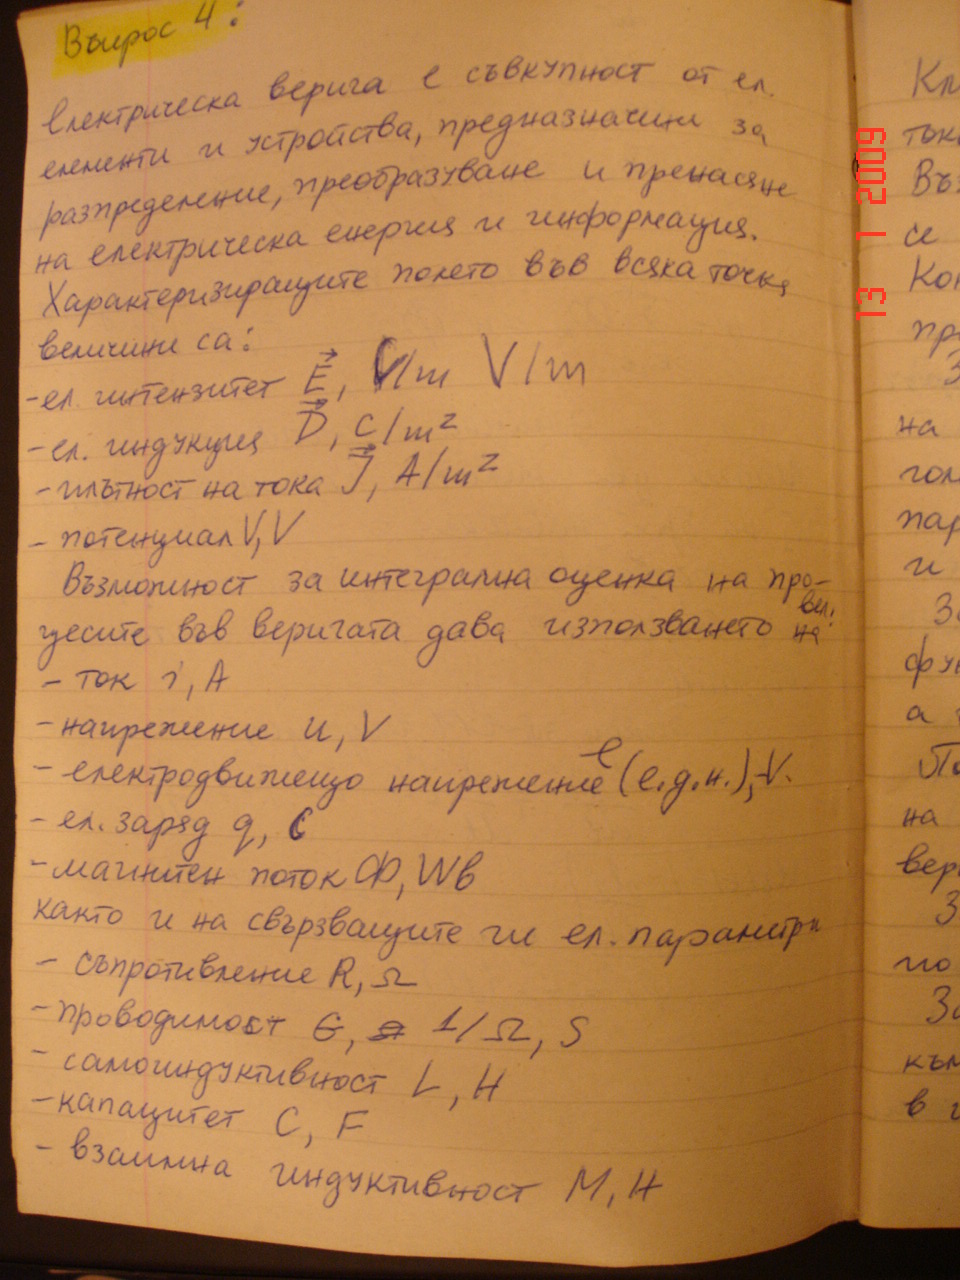 Въпрос 4:
Електрическа верига е съвкупност от ел.
елементи и устройства, предназначени за
разпределение, преобразуване и пренасяне
на електрическа енергия и информация.
Характеризиращите полето във всяка точка
величини са:
- ел. интензитет E, V/m V/m
- ел. индукция D, C/m²
- плътност на тока J, A/m²
- потенциал V, V
Възможност за интегрална оценка на про-
цесите във веригата дава използването на вел.:
- ток i, A
- напрежение u, V
- електродвижещо напрежение e (е.д.н.), V.
- ел. заряд q, C
- магнитен поток Ф, Wb
както и на свързващите ги ел. параметри
- съпротивление R, Ω
- проводимост G, 1/Ω, S
- самоиндуктивност L, H
- капацитет C, F
- взаимна индуктивност M, H
13 1 2009
Въз
се
на
и
а
на
в